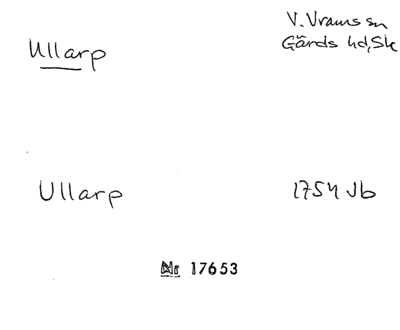 Ullarp
V. Vrams sn
Gärds hd, Sk
Ullarp
1754 Jb
Nr 17653